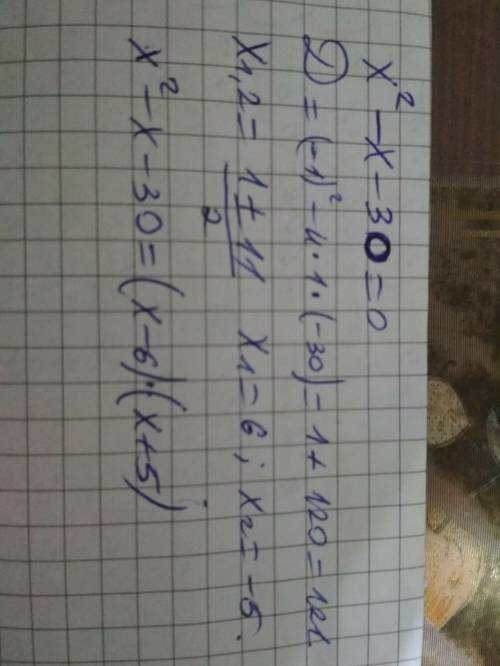 x² - x - 30 = 0
D = (-1)² - 4·1·(-30) = 1 + 120 = 121
x1,2 = (1 ± 11)/2 x1 = 6; x2 = -5.
x² - x - 30 = (x - 6)·(x + 5)